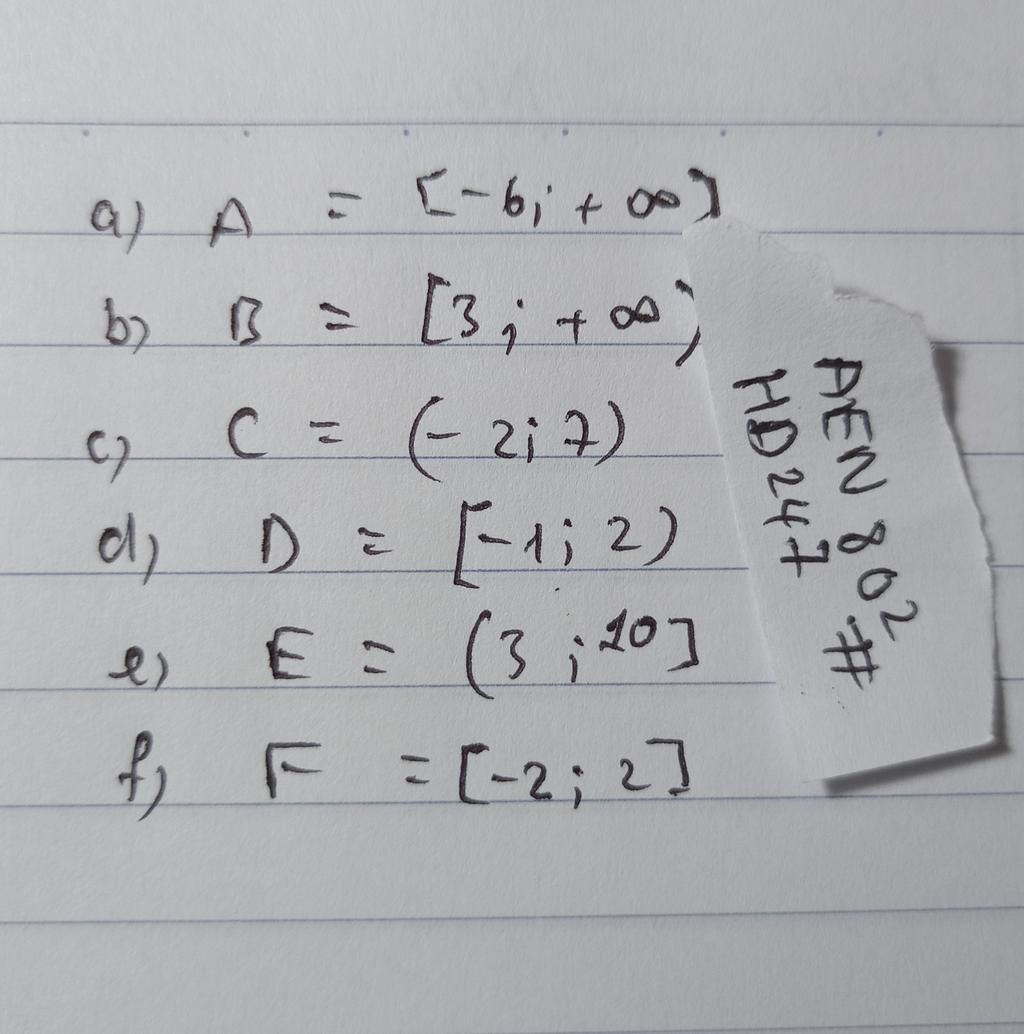 a) A = [-6; + ∞]
b) B = [3; + ∞)
c) C = (- 2; 7)
d) D = [-1; 2)
e) E = (3 ; 10]
f) F = [-2; 2]
AEN 802 #
HD247